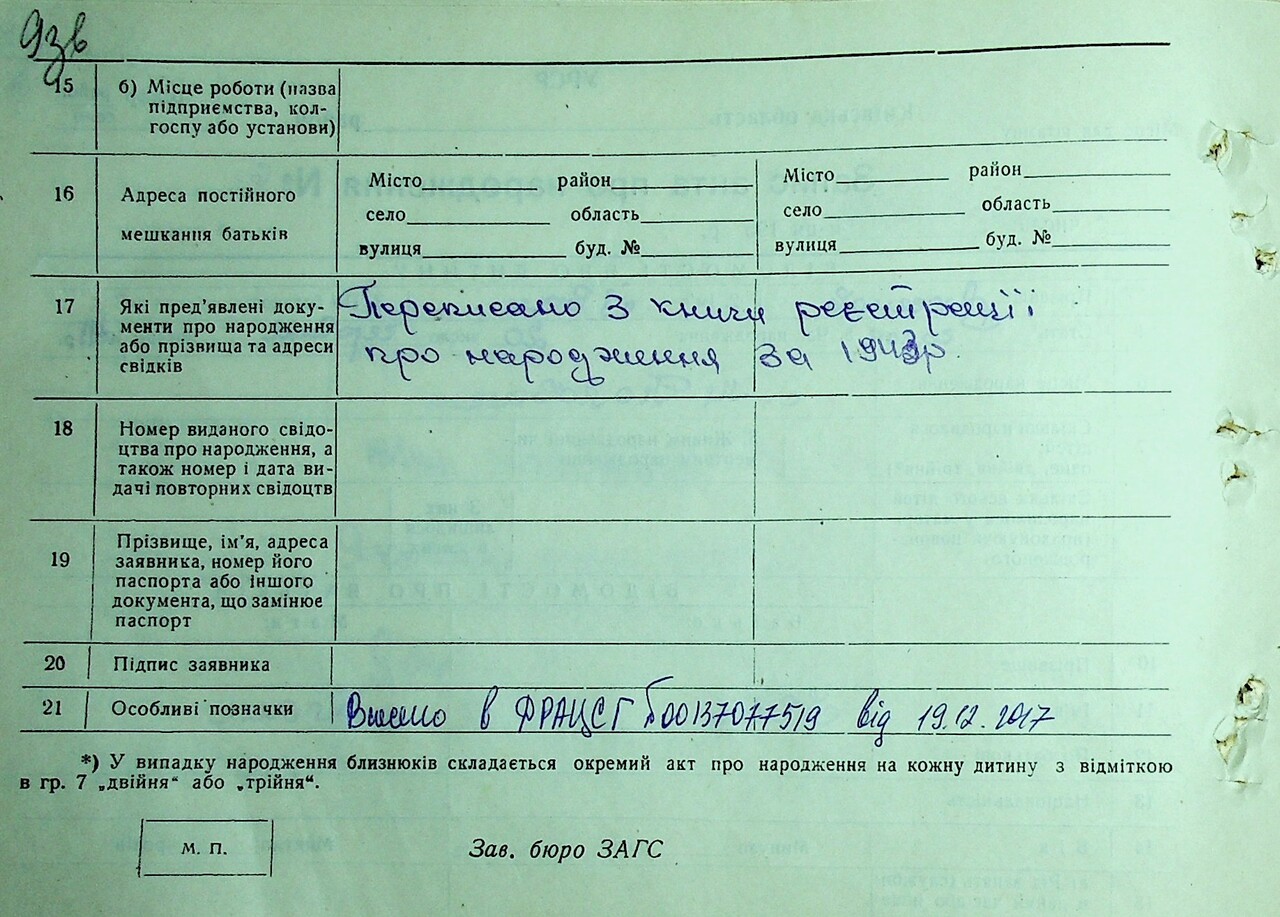 9зв
15 б) Місце роботи (назва
підприємства, кол-
госпу або установи)
16 Адреса постійного
мешкання батьків
Місто район
село область
вулиця буд. №
Місто район
село область
вулиця буд. №
17 Які пред’явлені доку-
менти про народження
або прізвища та адреси
свідків
Переписано з книги реєстрації
про народження за 1943р.
18 Номер виданого свідо-
цтва про народження, а
також номер і дата ви-
дачі повторних свідоцтв
19 Прізвище, ім’я, адреса
заявника, номер його
паспорта або іншого
документа, що замінює
паспорт
20 Підпис заявника
21 Особливі позначки
Внесено в ФРАЦСГ 00137077519 від 19.12.2017
*) У випадку народження близнюків складається окремий акт про народження на кожну дитину з відміткою
в гр. 7 „двійня“ або „трійня“.
м. п.
Зав. бюро ЗАГС